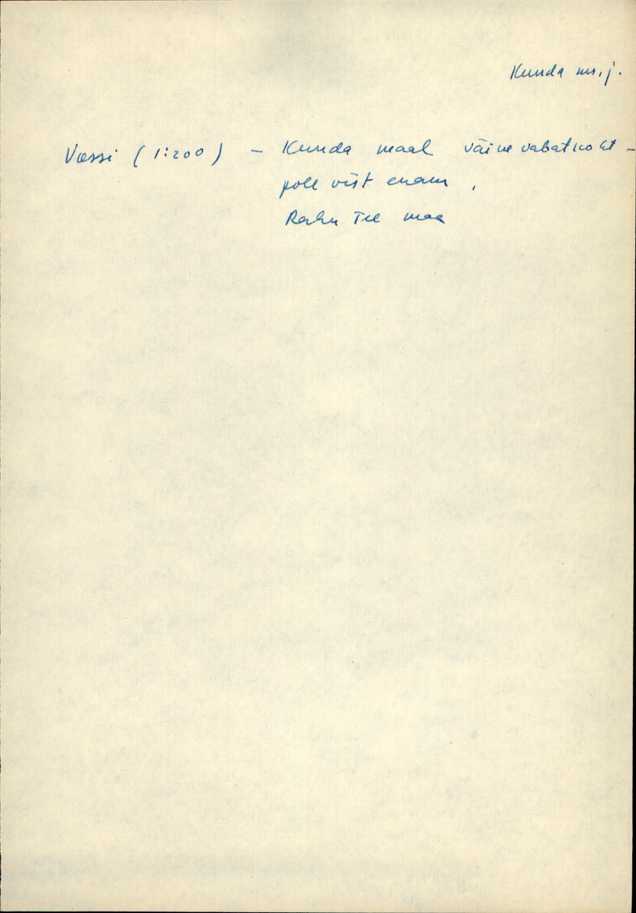 Kunda ms.j.
Vassi (1:200) - Kunda maal väike vabatkoht -
pole vist enam,
Rahu Tee maa